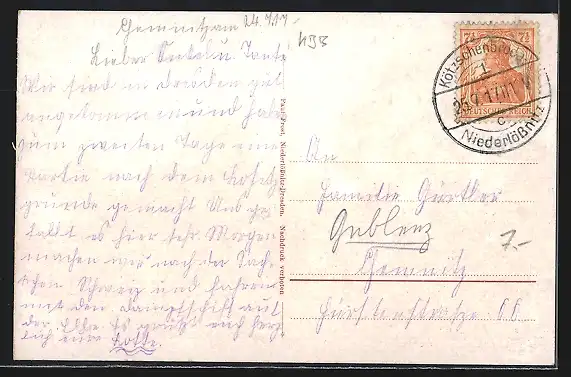 24.7.17
Lieber Onkel u. Tante
Wir sind in Dresden gut
angekommen und haben
zum zweiten Tage eine
Partie nach dem
grunde gemacht Uns ge-
fällt es hier sehr Morgen
machen wir nach der Säch-
schen Schweiz und fahren
mit den Dampfschiff auf
der Elbe. Es grüßt auch herz
lich eure Lotte.
Paul Prost, Niederlößnitz-Dresden. Nachdruck verboten
7½ 7½
DEUTSCHES REICH
Kötzschenbroda
1
c
Niederlößnitz
An
Familie Gürtler
Gablenz
Chemnitz
Fürstenstrasze
7.-